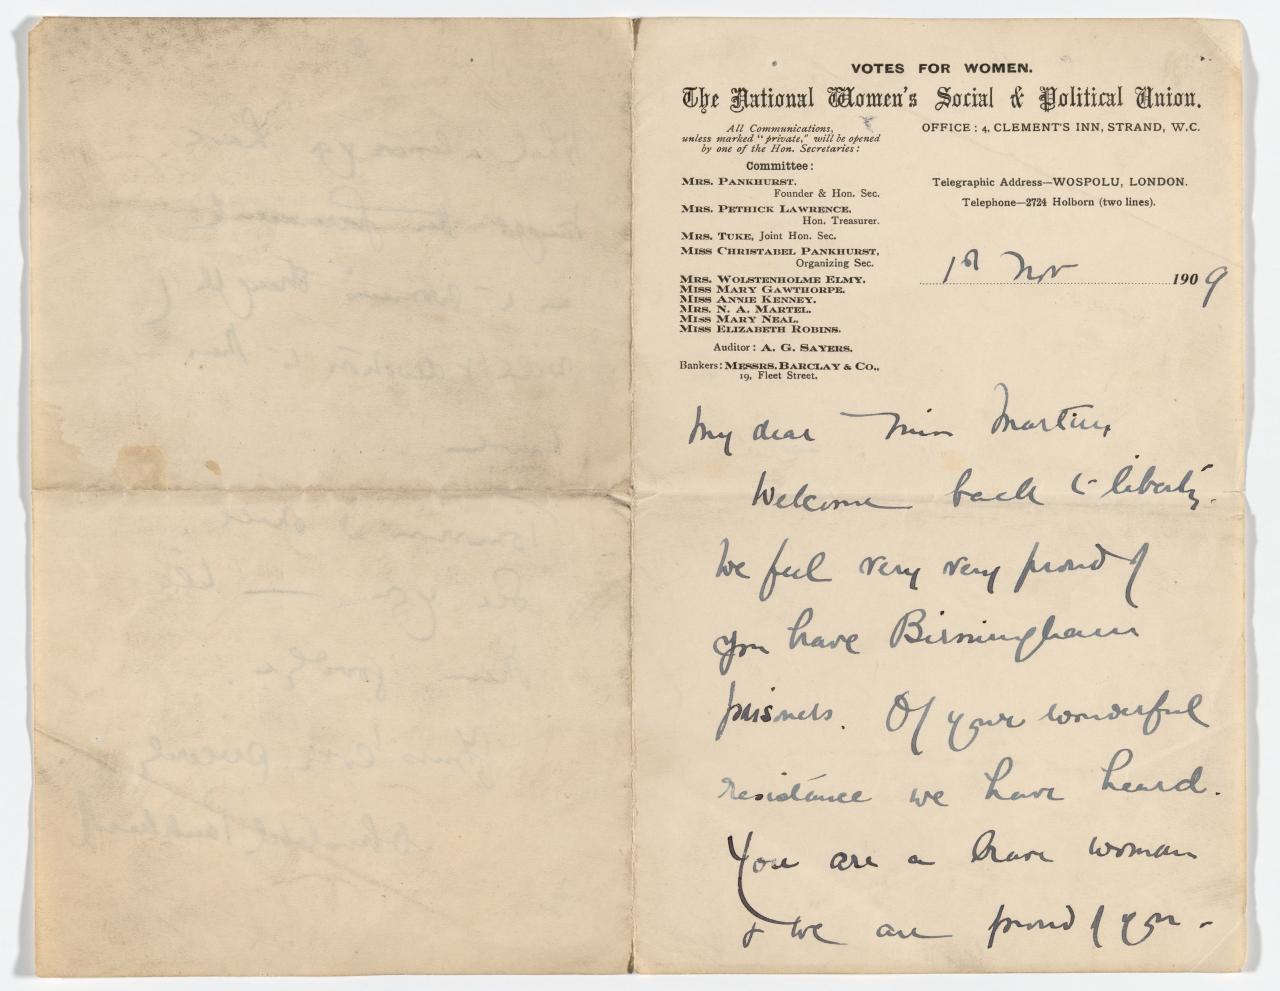 VOTES FOR WOMEN.
The National Women's Social & Political Union.
All Communications,
unless marked "private," will be opened
by one of the Hon. Secretaries:
OFFICE: 4, CLEMENT'S INN, STRAND, W.C.
Committee:
MRS. PANKHURST,
Founder & Hon. Sec.
MRS. PETHICK LAWRENCE,
Hon. Treasurer.
MRS. TUKE, Joint Hon. Sec.
MISS CHRISTABEL PANKHURST,
Organizing Sec.
MRS. WOLSTENHOLME ELMY.
MISS MARY GAWTHORPE.
MISS ANNIE KENNEY.
MRS. N. A. MARTEL.
MISS MARY NEAL.
MISS ELIZABETH ROBINS.
Auditor: A. G. SAYERS.
Bankers: MESSRS. BARCLAY & CO.,
19, Fleet Street.
Telegraphic Address—WOSPOLU, LONDON.
Telephone—2724 Holborn (two lines).
1st Nov 1909
My dear Miss Martin,
Welcome back to liberty.
We feel very very proud of
you brave Birmingham
prisoners. Of your wonderful
resistance we have heard.
You are a brave woman
& we are proud of you -